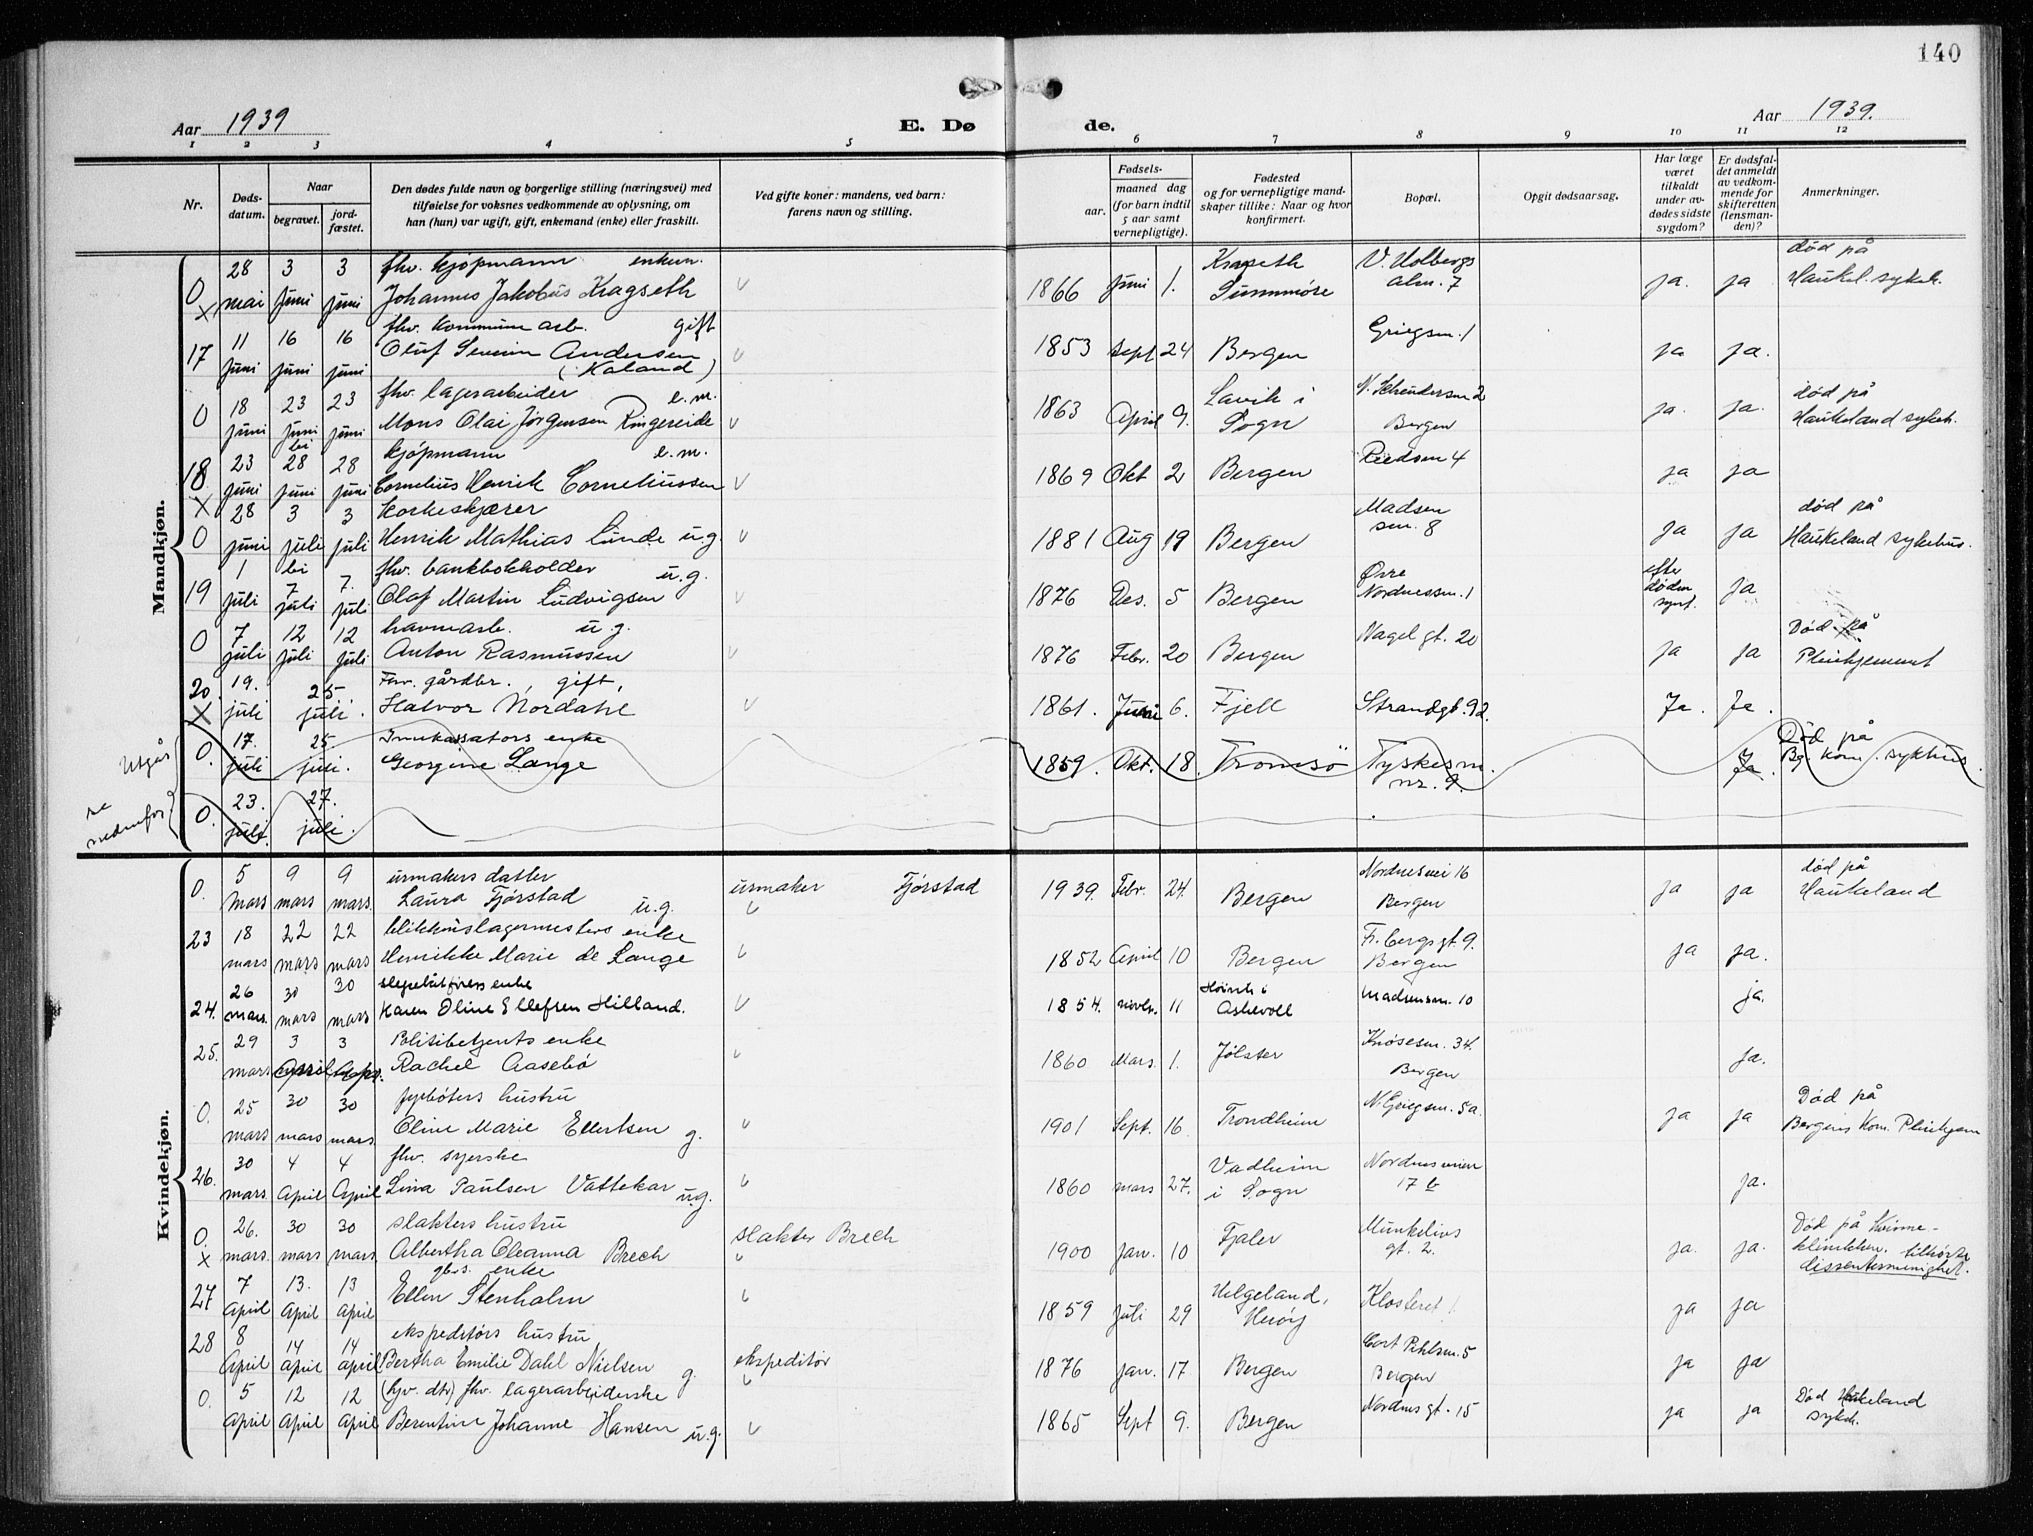 140
Aar 1939
E. Dø de.
Aar 1939.
1 2 3 4 5 6 7 8 9 10 11 12
Nr.
Døds-
datum.
Naar
begravet.
jord-
fæstet.
Den dødes fulde navn og borgerlige stilling (næringsvei) med
tilføielse for voksnes vedkommende av oplysning, om
han (hun) var ugift, gift, enkemand (enke) eller fraskilt.
Ved gifte koner: mandens, ved barn:
farens navn og stilling.
Fødsels-
aar.
maaned dag
(for barn indtil
5 aar samt
vernepligtige).
Fødested
og for vernepligtige mand-
skaper tillike: Naar og hvor
konfirmert.
Bopæl.
Opgit dødsaarsag.
Har læge
været
tilkaldt
under av-
dødes sidste
sygdom?
Er dødsfal-
det anmeldt
av vedkom-
mende for
skifteretten
(lensman-
den)?
Anmerkninger.
Mandkjøn.
28 3 3 fhv. kjøpmann enkem. Juni 1. V. Holbergs død på
0 x mai juni juni Johannes Jakobus Kragseth 1866 Sunnmøre alm. 7 ja. ja Haukel. sykeh.
11 16 16 fhv. kommune arb. gift Griegsm. 1
17 juni juni juni Oluf Severin Andersen 1853 Sept 24 Bergen ja ja.
(Kaland)
18 23 23 fhv. lagerarbeider e.m. Lavik i død på
0 juni juni juni Mons Olai Jørgensen Ringereide 1863 April 9. Sogn Bergen ja. ja. Haukeland sykeh.
bi
23 28 28 kjøpmann e.m.
18 x juni juni juni Cornelius Henrik Corneliussen 1869 Okt 2 Bergen ja ja
28 3 3 Korkeskjærer Madsen død på
0 juni juli juli Henrik Mathias Lunde u.g. 1881 Aug 19 Bergen sm. 8 ja ja Haukeland sykehus.
1 bi 7 7. fhv. bankbokholder u.g. Øvre efter
19 juli juli juli Olaf Martin Ludvigsen 1876 Des. 5 Bergen Nordnessm. 1 døden ja
7 12 12 havnearb. u.g. Nagel gt. 20 Død på
0 juli juli juli Anton Rasmussen 1876 Febr. 20 Bergen ja ja Pleiehjemmet
20. 19. 25. Forr. gårdbr., gift,
x juli juli. Halvor Nordahl 1861. 6. Fjell Strandgt. 92. Ja. Ja.
Utgår 17. 25. Innkassators enke Død på
0. juli juli. Georgine Lange 1859. Okt. 18. Tromsø Tyskesm. nr. 9. Ja. Bg. kom. sykhus.
se
nedenfor
23. 27.
0. juli. juli.
Kvindekjøn.
5 9 9 urmakers datter Nordnesvei 16 død på
0. mars mars mars. Laura Fjørstad u.g. urmaker Fjørstad 1939. Febr. 24. Bergen Bergen ja ja Haukeland
18 22 22 blikkenslagermesters enke Fr. Bergs gt. 9.
23 mars mars mars Henrikke Marie de Lange 1852 April 10 Bergen Bergen ja ja.
26 30 30 enke
24. mars. mars mars Karen Oline Ellefsen Hilland. 1854. novbr. 11 Askevoll Madsensm. 10 ja.
29 3 3 Politibetjents enke Knøsesm. 34.
25. mars april Apr. Rachel Aasebø 1860 Mars. 1. Jølster Bergen ja.
25 30 30 fyrbøters hustru N. Griegsm. 5a. Død på
0. mars mars mars. Oline Marie Ellertsen g. 1901 Sept. 16. Trondheim ja ja Bergens Kom. Pleiehjem
30 4 4 fhv. syerske Vadheim Nordnesveien
26. mars April April Lina Paulsen Vattekar u.g. 1860 mars 27. i Sogn 17 b ja.
26. 30 30 slakters hustru Munkelivs Død på Kvinne-
0. x mars. mars mars. Albertha Oleanna Brech slakter Brech 1900 Jan. 10 Fjaler gt. 2. ja. ja. klinikken. tilhørte
dissentermenighet.
7 13. 13 gbrs. enke Helgeland,
27 april April April Ellen Stenholm 1859 Juli 29 Herøy Klosteret ja ja
8 14 14 ekspeditørs hustru Cort Pihlsm. 5
28 April april april Bertha Emilie Dahl Nielsen g. ekspeditør 1876 jan. 17 Bergen Bergen ja ja
5 12 12 (hjv. dtr) fhv. lagerarbeiderske Død Haukeland
0. April April April Berentine Johanne Hansen u.g. 1865 Sept 9. Bergen Nordnesgt. 15 ja ja sykeh.